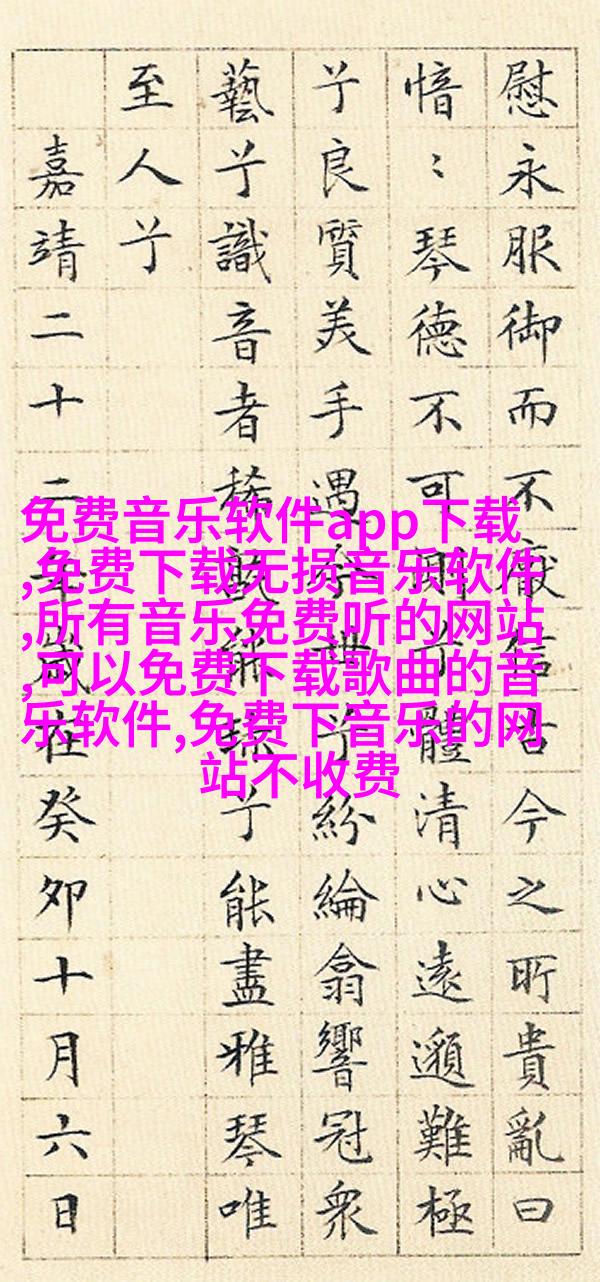 慰永服御而不厭信古今之所貴亂曰
愔〻琴德不可測兮體清心遠邈難極
兮良質美手遇今世兮紛綸翕響冠衆
藝兮識音者稀孰能珍兮能盡雅琴唯
至人兮
嘉靖二十二年歲在癸卯十月六日
免费音乐软件app下载
,免费下载无损音乐软件
,所有音乐免费听的网站
,可以免费下载歌曲的音
乐软件,免费下音乐的网
站不收费